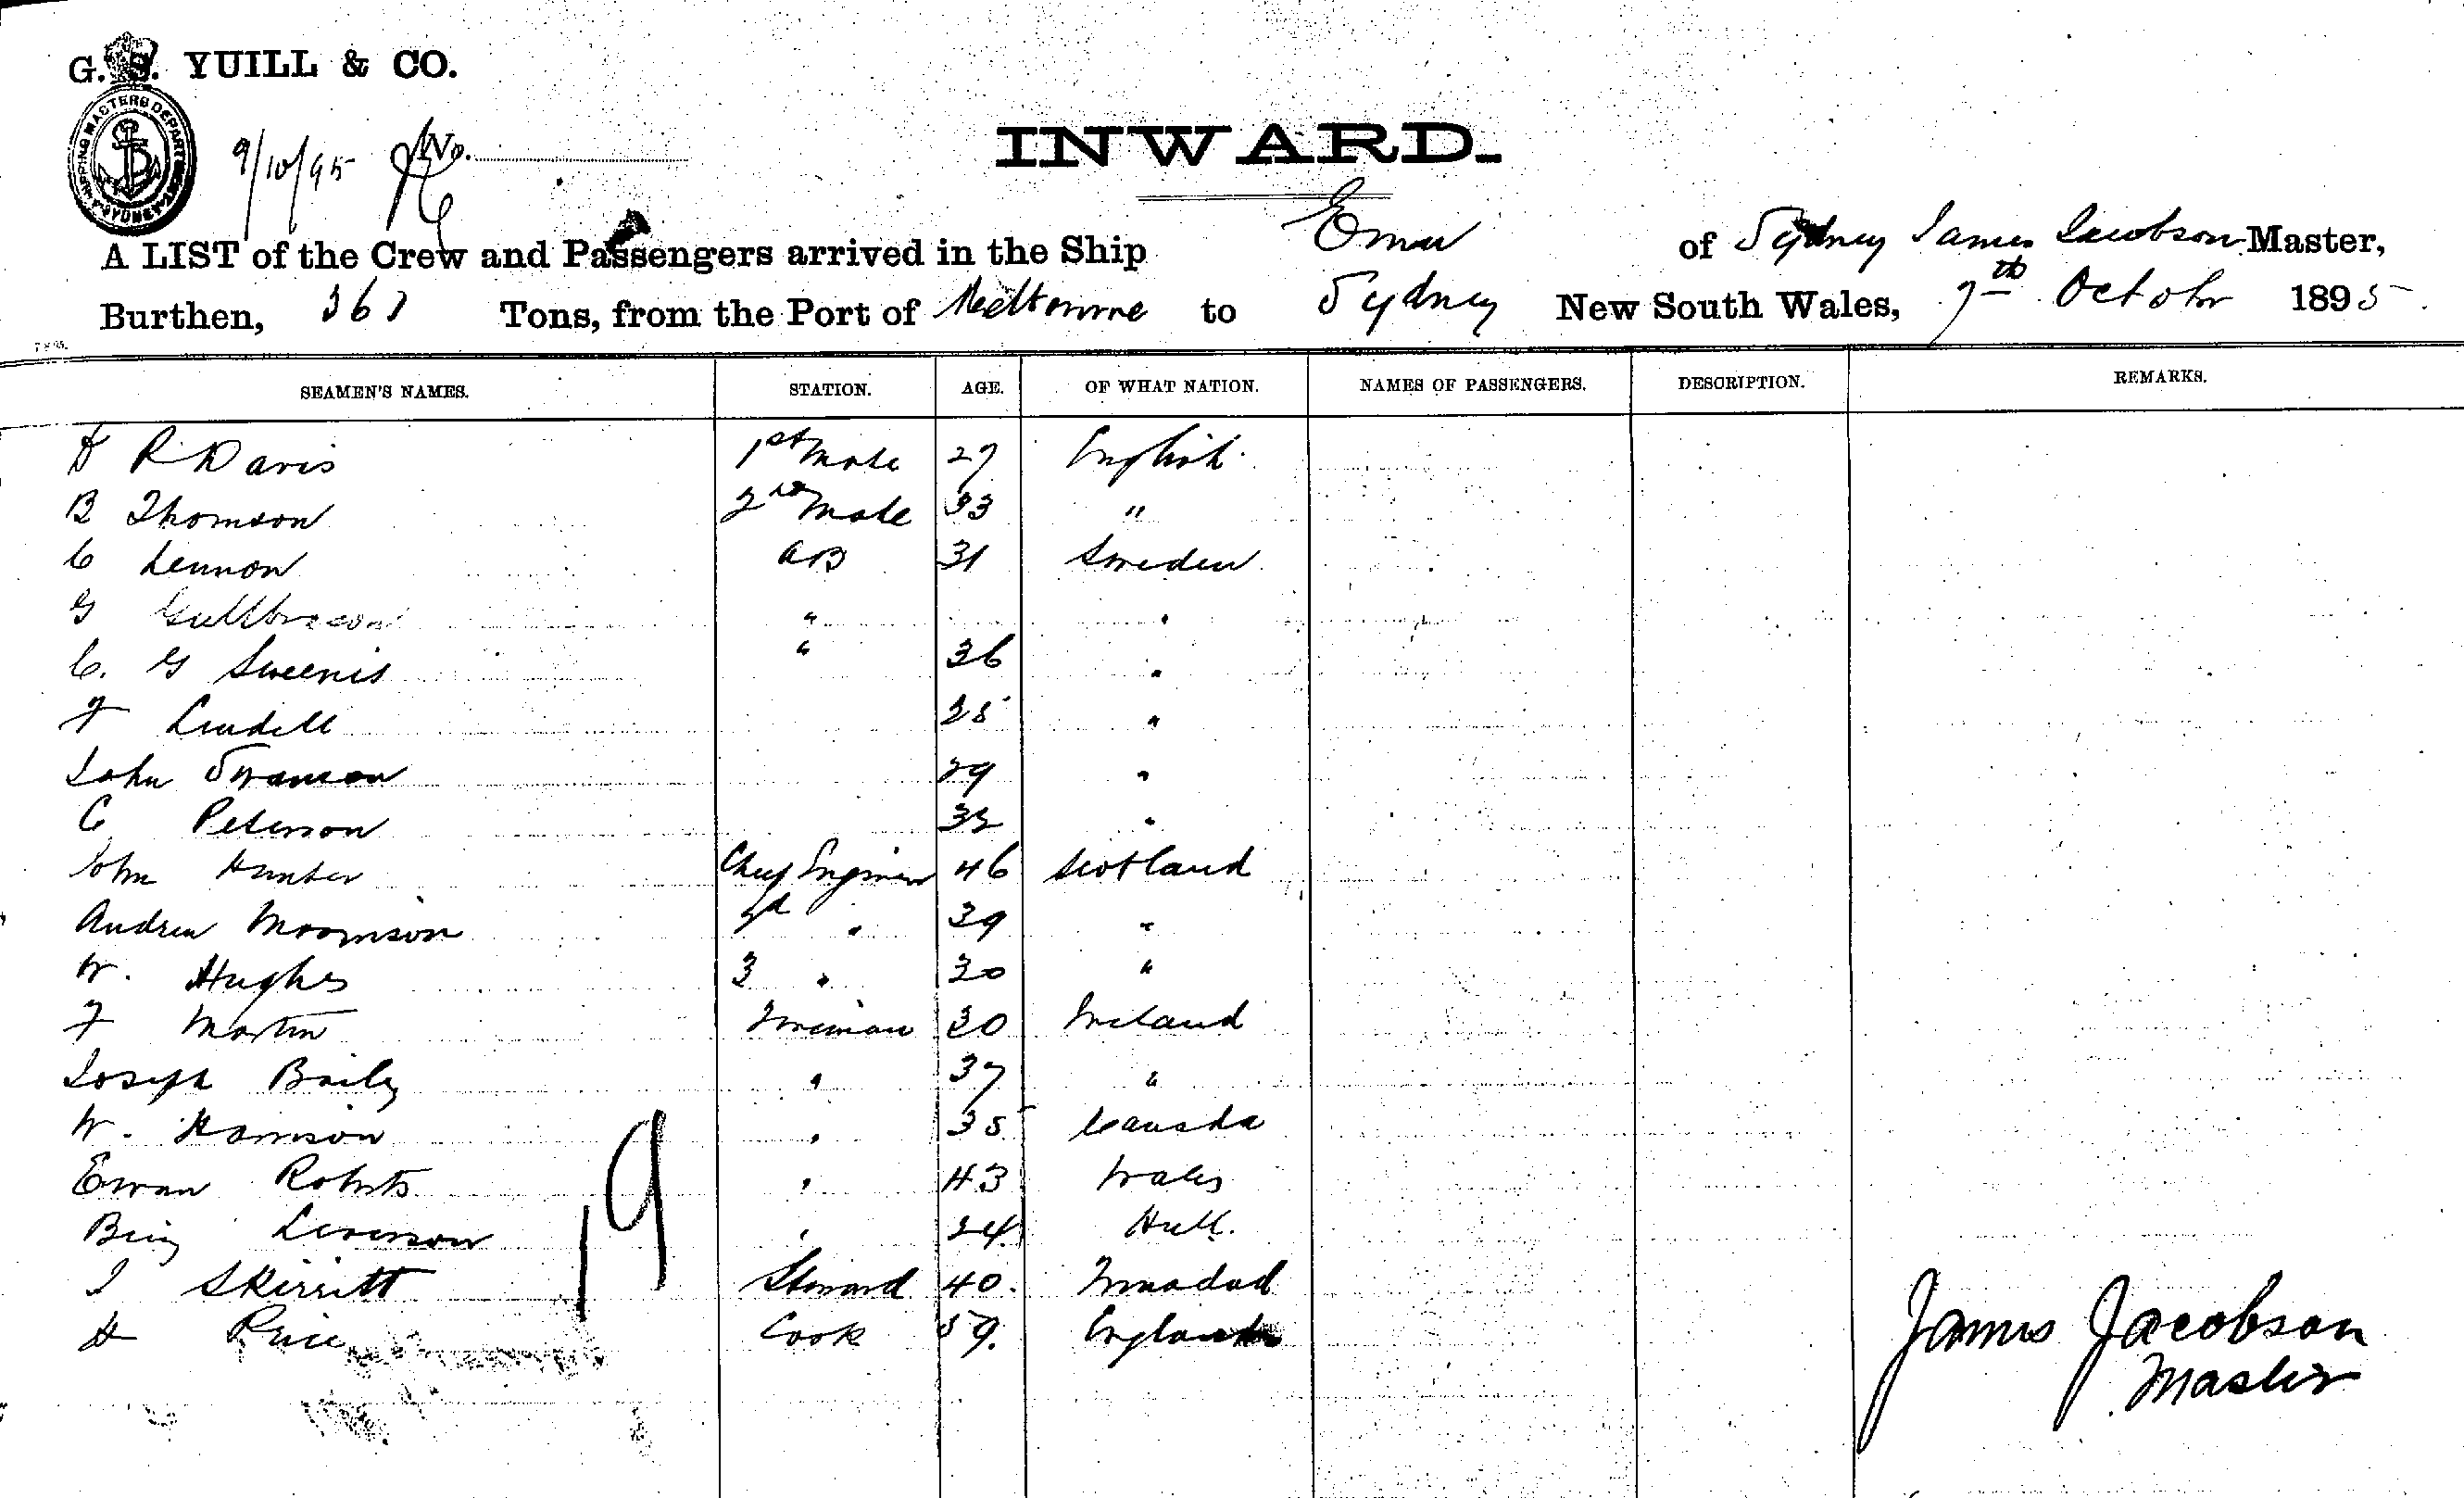 G. S. YUILL & CO.
SHIPPING MASTERS DEPARTMENT SYDNEY
9/10/95 No.
INWARD.
A LIST of the Crew and Passengers arrived in the Ship Emu of Sydney James Jacobson Master,
Burthen, 367 Tons, from the Port of Melbourne to Sydney New South Wales, 7th October 1895.
SEAMEN'S NAMES. STATION. AGE. OF WHAT NATION. NAMES OF PASSENGERS. DESCRIPTION. REMARKS.
R Davis 1st Mate 27 English
B Thomson 2nd Mate 33 "
C Lennon AB 31 Sweden
G " "
C. G " 36 "
F Lindell 25 "
John Swanson 29 "
C Peterson 32 "
John Hunter Chief Engineer 46 Scotland
Andrew Morrison 2d " 39 "
W. Hughes 3 " 30 "
F Martin Fireman 30 Ireland
Joseph Baily " 37 "
W. Harrison " 35 Canada
Ewan Roberts " 43 Wales
Leverson " 24 Hull.
J Skerritt Steward 40. Trinidad
H Price Cook 59. England
19
James Jacobson
Master